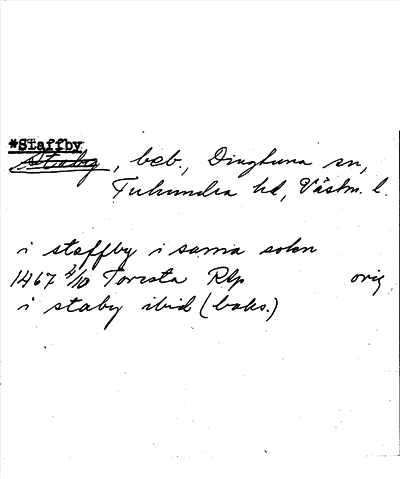 *Staffby
Staby, beb., Dingtuna sn,
Tuhundra hd, Västm. l.
i staffby i sama sokn
1467 2/10 Torista Rlp orig
i staby ibid (baks.)